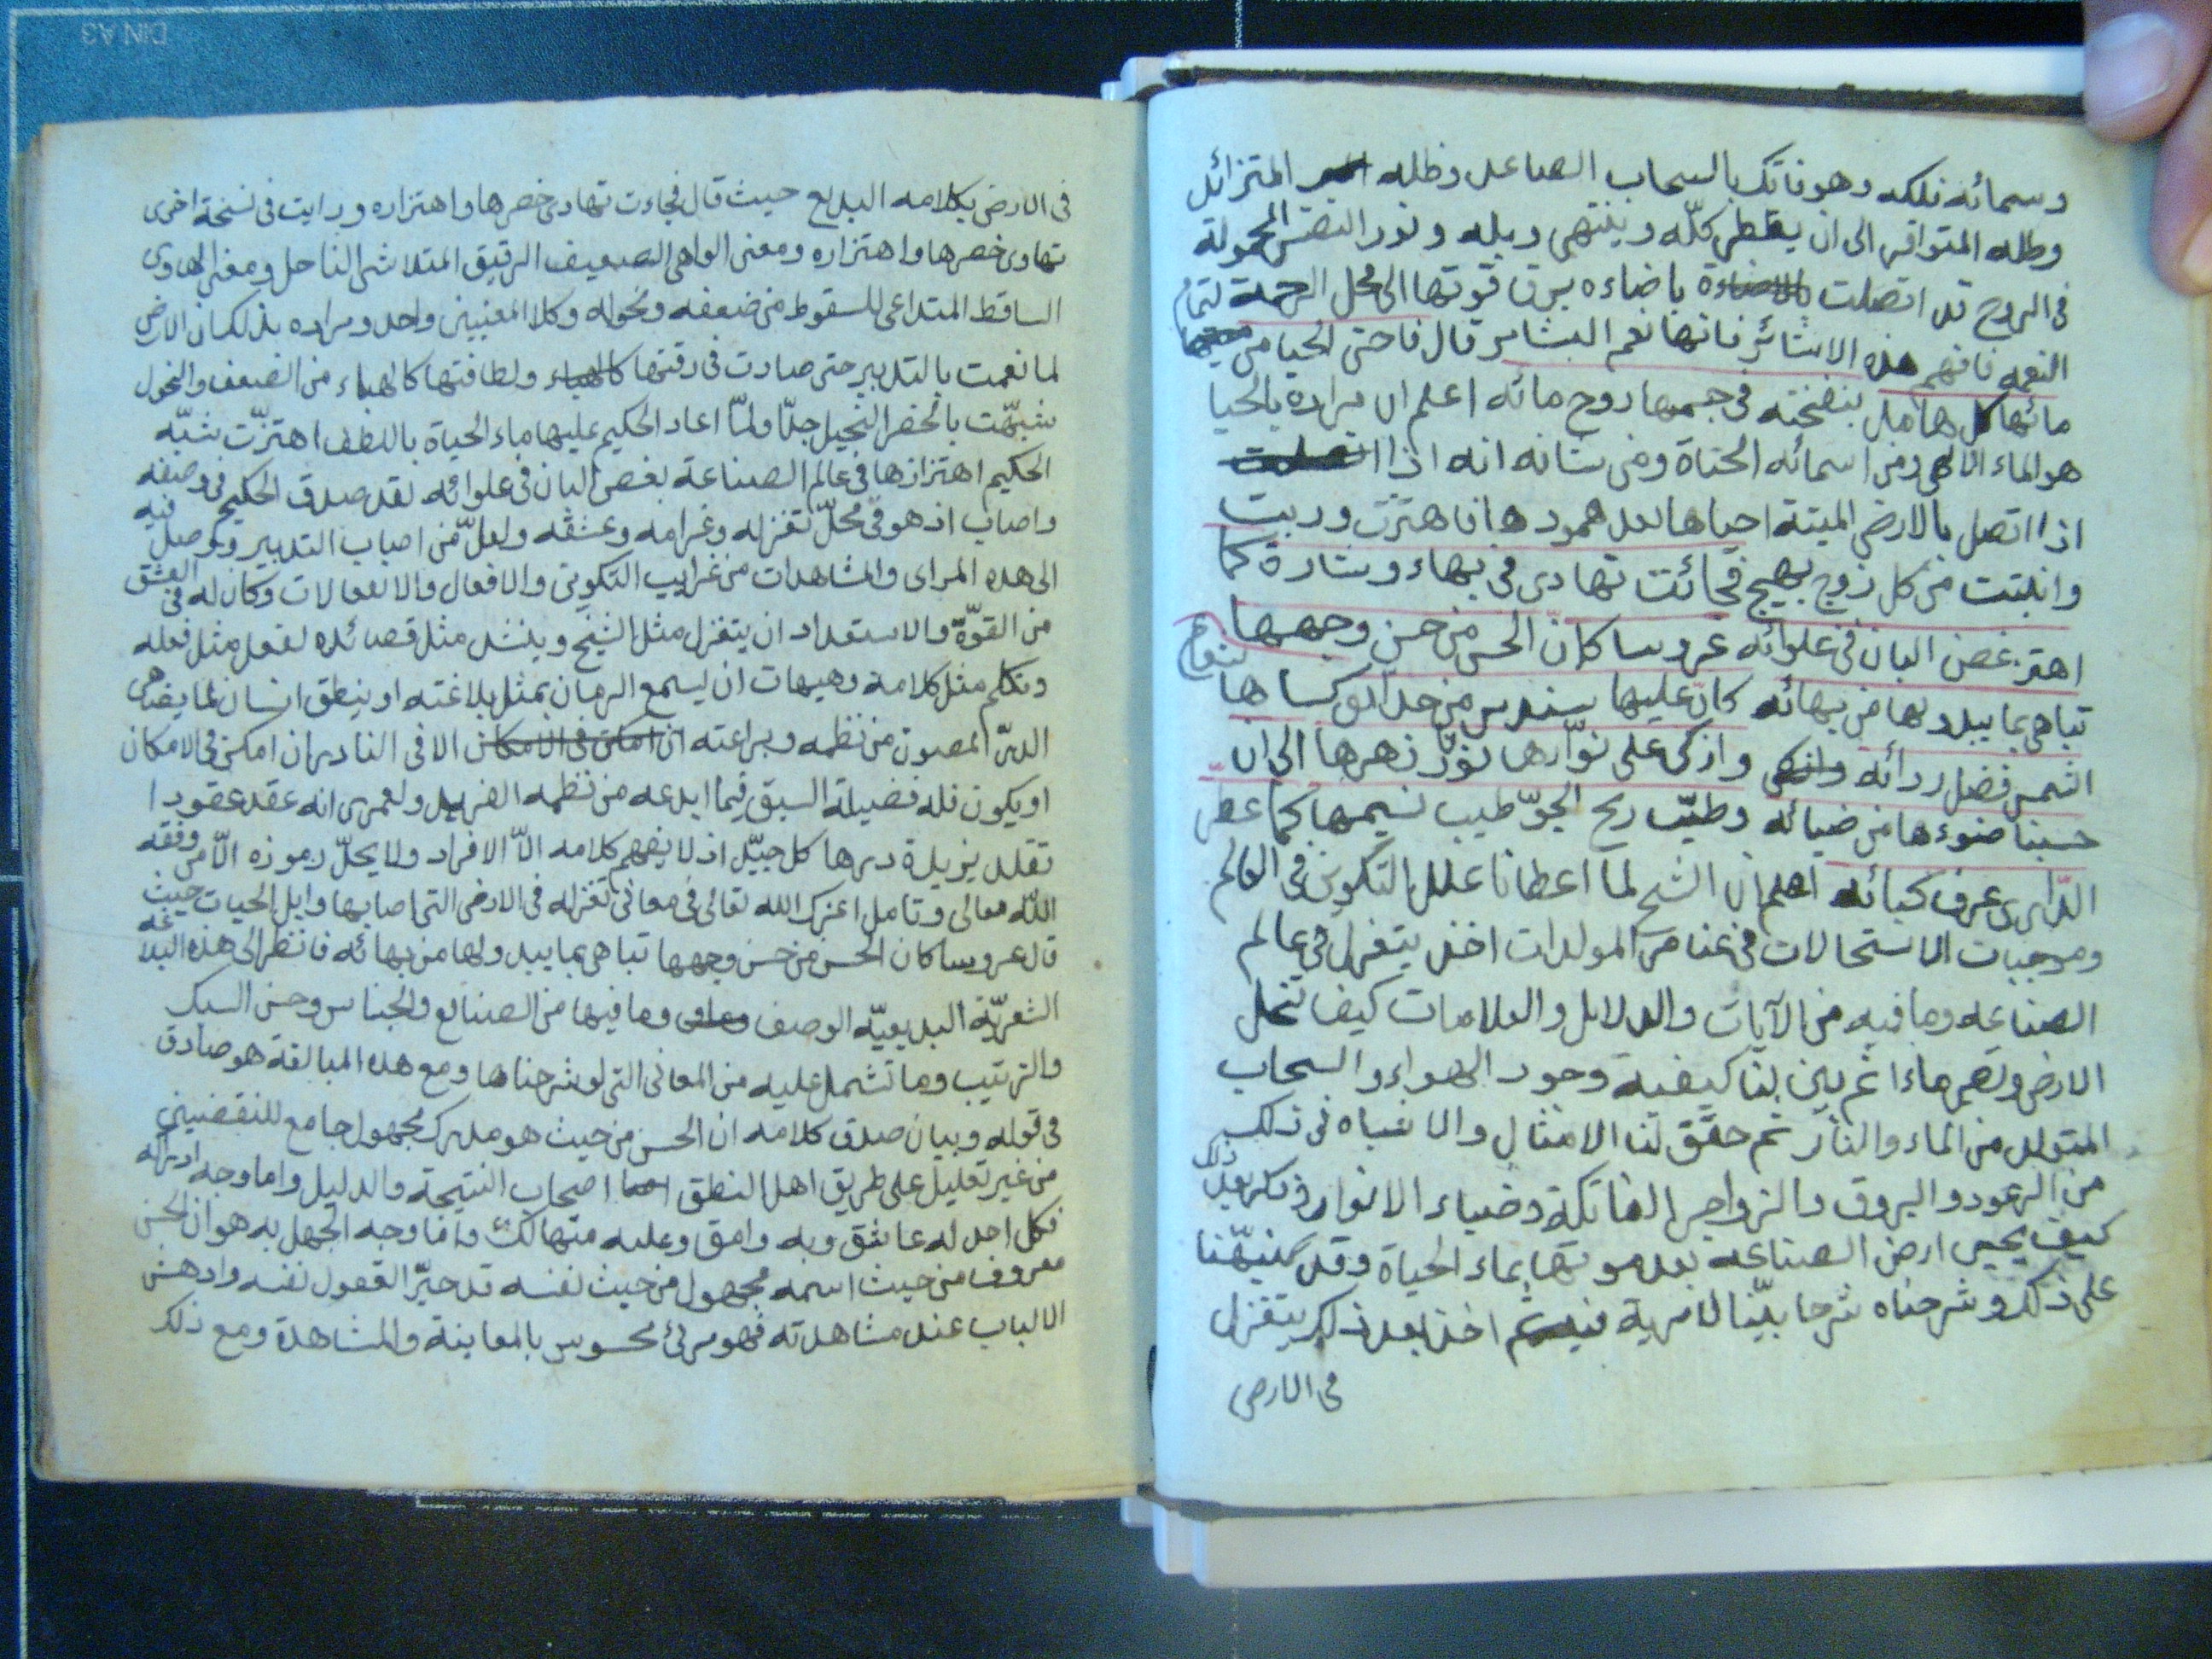 وسمائه فلكه وهو فاتك بالسحاب الصاعد وظله المتزائد
وطله المتواتر الى ان يقطر كلّه وينتهى وبله ونور النفس المحمولة
فى الروح قد اتصلت باضاءه برق قوتها الى محل الرحمة لتمام
النعمه فافهم هذه الاشائر فانها نعم البشاير قال فاحيى الحيا من
مائها كل هامد بنفخته فى جسمها روح مائه اعلم ان مراده بالحيا
هو الماء الالهى ومن اسمائه الحياة ومن شانه انه اذا
اذا اتصل بالارض الميتة احياها بعد همودها فاهتزت وربت
وانبتت من كل زوج بهيج فجائت تهادى فى بهاء وشارة كما
اهتز غصن البان فى علوائه عروسا كانّ الحسن من حسن وجهها
تباهى بما يبدو لها من بهائه كانّ عليها سندس من حدائق كساها
الشمس فضل ردائه وازكى على نوّارها نور زهرها الى ان
حسبنا ضوءها من ضيائه وطيّب ريح الجوّ طيب نسيمها كما عطر
الدّارى عرف كبائه اعلم ان الشيخ لما اعطانا علل التكوين فى العالم
وموجبات الاستحالات فى عناصر المولدات اخذ يتغزل فى عالم
الصناعه وما فيه من الآيات والدلايل والعلامات كيف تنحل
الارض وتصير ماءا ثم بين لنا كيفية وجود الهواء والسحاب
المتولد من الماء والنار ثم حقّق لنا الامثال والاشباه فى ذلك
من الرعود والبروق والزواجر الفاتكة وضياء الانوار ذكر بعد ذلك
كيف يحيى ارض الصناعه بعد موتها بماء الحياة وقد نبّهنا
على ذلك وشرحناه شرحا بيّنا لا مرية فيه ثم اخذ بعد ذلك يتغزل
فى الارض
فى الارض بكلامه البديع حيث قال فجاءت تهادى خصرها واهتزاره ورايت فى نسخة اخرى
تهاوى خصرها واهتزاره ومعنى الواهى الضعيف الرقيق المتلاشى الناحل ومعنى الهاوى
الساقط المتداعى للسقوط من ضعفه ونحوله وكلا المعنيين واحد ومراده بذلك ان الارض
لما نعمت بالتدبير حتى صارت فى رقتها ولطافتها كالهباء من الضعف والنحول
شبهّت بالخصر النحيل جدّا ولمّا اعاد الحكيم عليها ماء الحياة باللطف اهتزّت شبّه
الحكيم اهتزازها فى عالم الصناعة بغصن البان فى علوائه لقد صدق الحكيم فى وصفه
واصاب اذ هو فى محلّ تغزله وغرامه وعشقه ولعلّ من اصاب التدبير ووصل فيه
الى هذه المراى والمشاهدات من غرايب التكوين والافعال والانفعالات وكان له فى العشق
من القوّة والاستعداد ان يتغزل مثل الشيخ وينشد مثل قصائده لفعل مثل فعله
وتكلم مثل كلامه وهيهات ان يسمع الزمان بمثل بلاغته او ينطق انسان لما يضاهى
الدرّ المصون من نظمه وبراعته الا فى النادر ان امكن فى الامكان
او يكون فله فضيلة السبق فيما ابدعه من نظمه الفريد ولعمرى انه عقد عقودا
تقلد بفريدة درها كل جيّد اذ لا يفهم كلامه الاّ الافراد ولا يحلّ رموزه الاّ من وفقه
اللّه تعالى وتامل اعزك الله تعالى فى معانى تغزله فى الارض التى اصابها وابل الحيات حيث
قال عروسا كان الحسن من حسن وجهها تباهى بما يبدو لها من بهائه فانظر الى هذه البلاغه
الشعريّة البديعيّه الوصف وما فيها من الصنايع والجناس وحسن السبك
والترتيب وما تشمل عليه من المعانى التى لو شرحناها ومع هذه المبالغة هو صادق
فى قوله وبيان صدق كلامه ان الحسن من حيث هو مدرك مجهول جامع للنقضيين
من غير تعليل على طريق اهل المنطق اصحاب النتيجة والدليل واما وجه ادراكه
فكل احد له عاشق وبه وامق وعليه متهالك وامّا وجه الجهل به هو ان الحسن
معروف من حيث اسمه مجهول من حيث نفسه قد حيّر العقول نفسه وادهش
الالباب عند مشاهدته فهو مرئ محسوس بالمعاينة والمشاهدة ومع ذلك